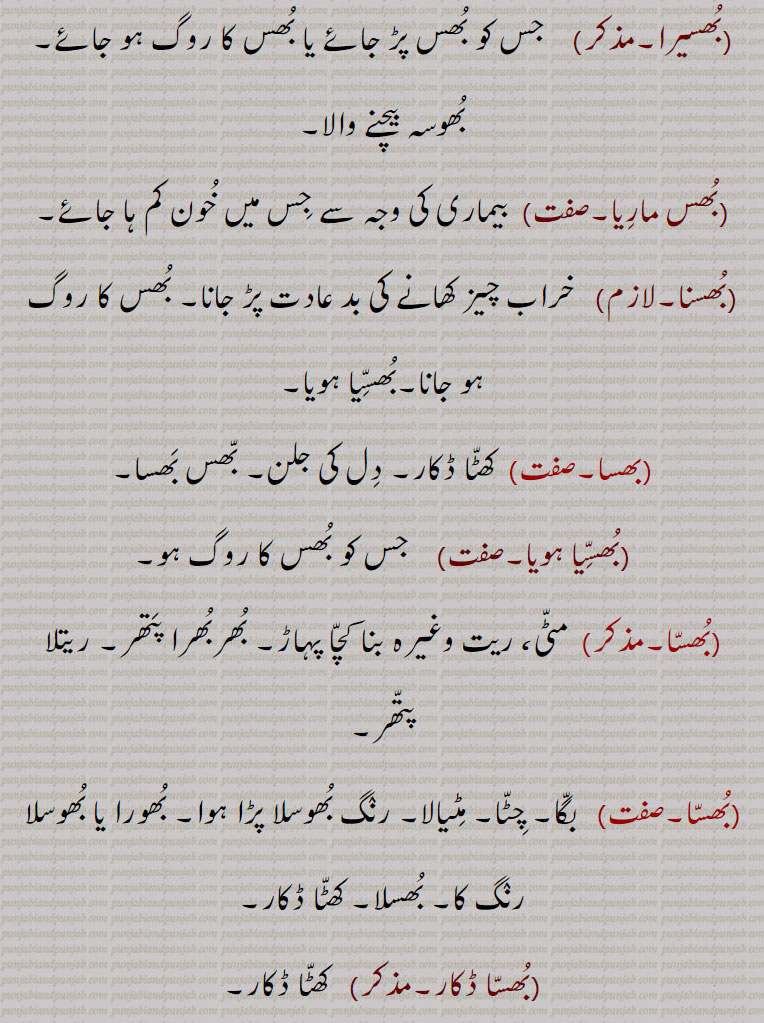 (بُھسیرا۔مذکر) جس کو بُھس پڑ جائے یا بُھس کا روگ ہو جائے۔
بُھوسہ بیچنے والا۔
(بُھس مارِیا۔صفت) بیماری کی وجہ سے جِس میں خُون کم ہا جائے۔
(بُھسنا۔لازم) خراب چیز کھانے کی بد عادت پڑ جانا۔ بُھس کا روگ
ہو جانا۔بُھسِّیا ہویا۔
(بھسا۔صفت) کھٹّا ڈکار۔ دِل کی جلن۔ بّھس بَھسا۔
(بُھسِّیا ہویا۔صفت) جس کو بُھس کا روگ ہو۔
(بُھسّا۔مذکر) مٹّی، ریت وغیرہ بنا کچّا پہاڑ۔ بُھربُھرا پتھر۔ ریتلا
پتّھر۔
(بُھسّا۔صفت) بگّا۔ چِٹّا۔ مِٹیالا۔ رنگ بُھوسلا پڑا ہوا۔ بُھورا یا بُھوسلا
رنگ کا۔ بُھسلا۔ کھٹّا ڈکار۔
(بُھسّا ڈکار۔مذکر) کھٹّا ڈکار۔